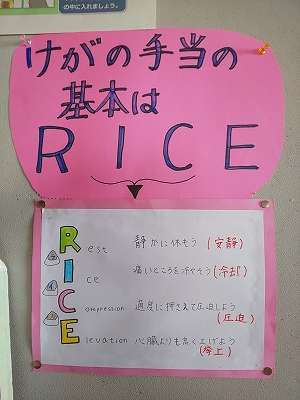 の中に入れましょう。
けがの手当の
基本は
RICE
Rest 静かに休もう(安静)
Ice 痛いところを冷やそう(冷却)
Compression 適度に押さえて圧迫しよう
(圧迫)
Elevation 心臓よりも高く上げよう
(挙上)